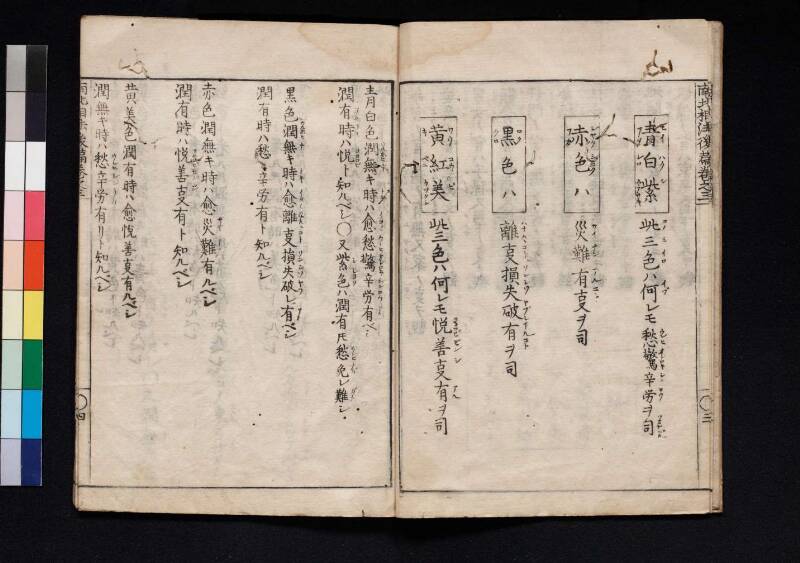 南北相法後篇巻之三
青白紫 此三色ハ何レモ愁驚辛労ヲ司
赤色ハ 災難有叓ヲ司
黒色ハ 離叓損失破有ヲ司
黄紅美 此三色ハ何レモ悦善叓有ヲ司
三
青白色潤無キ時ハ愈愁驚辛労有ベシ
潤有時ハ悦ト知ルベシ〇又紫色ハ潤有𪜈愁免レ難シ
黒色潤無キ時ハ愈離叓損失破レ有ベシ
潤有時ハ愁辛労有ト知ルベシ
赤色潤無キ時ハ愈災難有ルベシ
潤有時ハ悦善叓有ト知ルベシ
黄美色潤有時ハ愈悦善叓有ルベシ
潤無キ時ハ愁辛労有リト知ルベシ
南北相法後篇巻之三
四